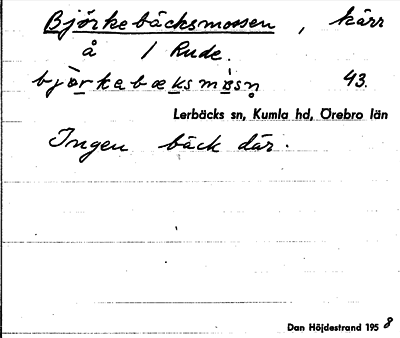 Björkebäcksmossen, kärr
å 1 Rude.
bjòrkabæksmòsn 43.
Lerbäcks sn, Kumla hd, Örebro län
Ingen bäck där.
Dan Höjdestrand 1958